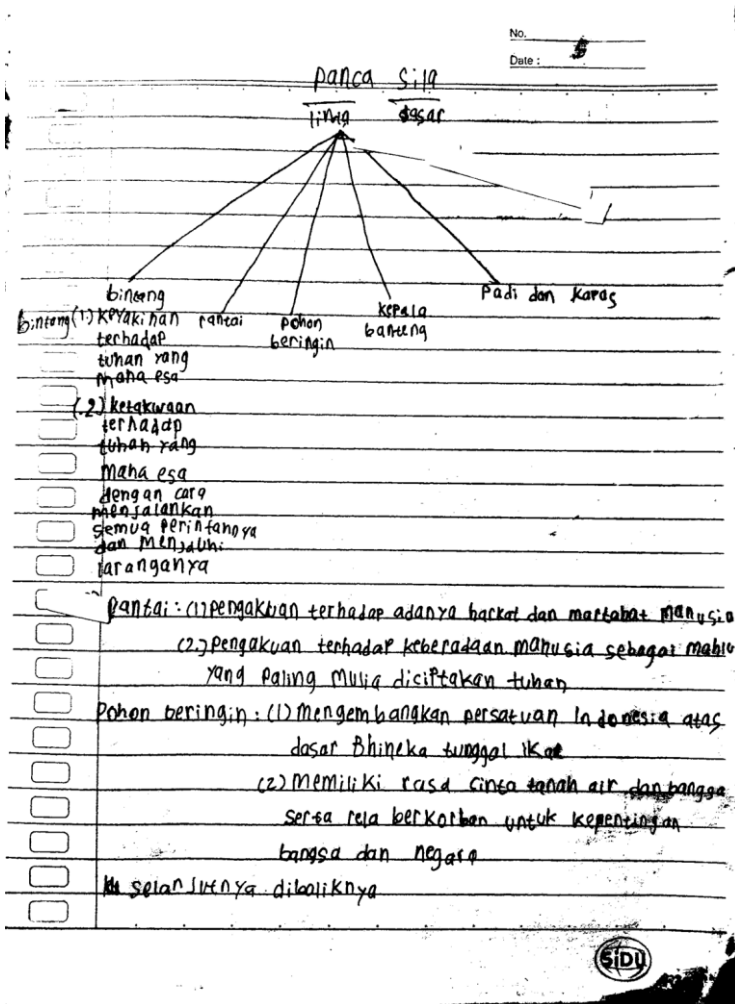 No.
Date :
Panca Sila
lima dasar
bintang
rantai
pohon
beringin
kepala
banteng
Padi dan Kapas
bintang (1) Keyakinan
terhadap
tuhan yang
maha esa
(2) ketakwaan
terhadap
tuhan yang
maha esa
dengan cara
menjalankan
semua perintahnya
dan menjauhi
laranganya
Rantai : (1) pengakuan terhadap adanya harkat dan martabat manusia
(2) pengakuan terhadap keberadaan manusia sebagai mahlu
yang paling mulia diciptakan tuhan
Pohon beringin : (1) mengembangkan persatuan Indonesia atas
dasar Bhineka tunggal ika
(2) memiliki rasa cinta tanah air dan bangga
serta rela berkorban untuk kepentingan
bangsa dan negara
selanjutnya dibaliknya
SiDU